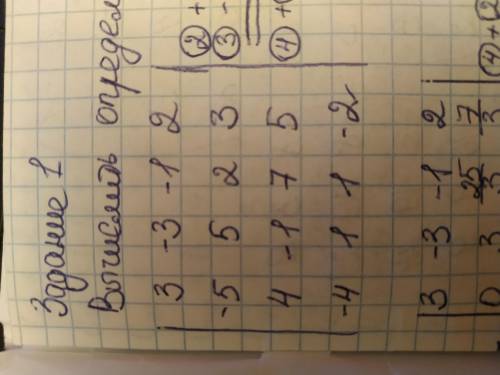 Задание 1
Вычислить определ
3 -3 -1 2
-5 5 2 3 ② +
4 -1 7 5 ③ -
-4 1 1 -2 ④ +
3 -3 -1 2
④ + ②